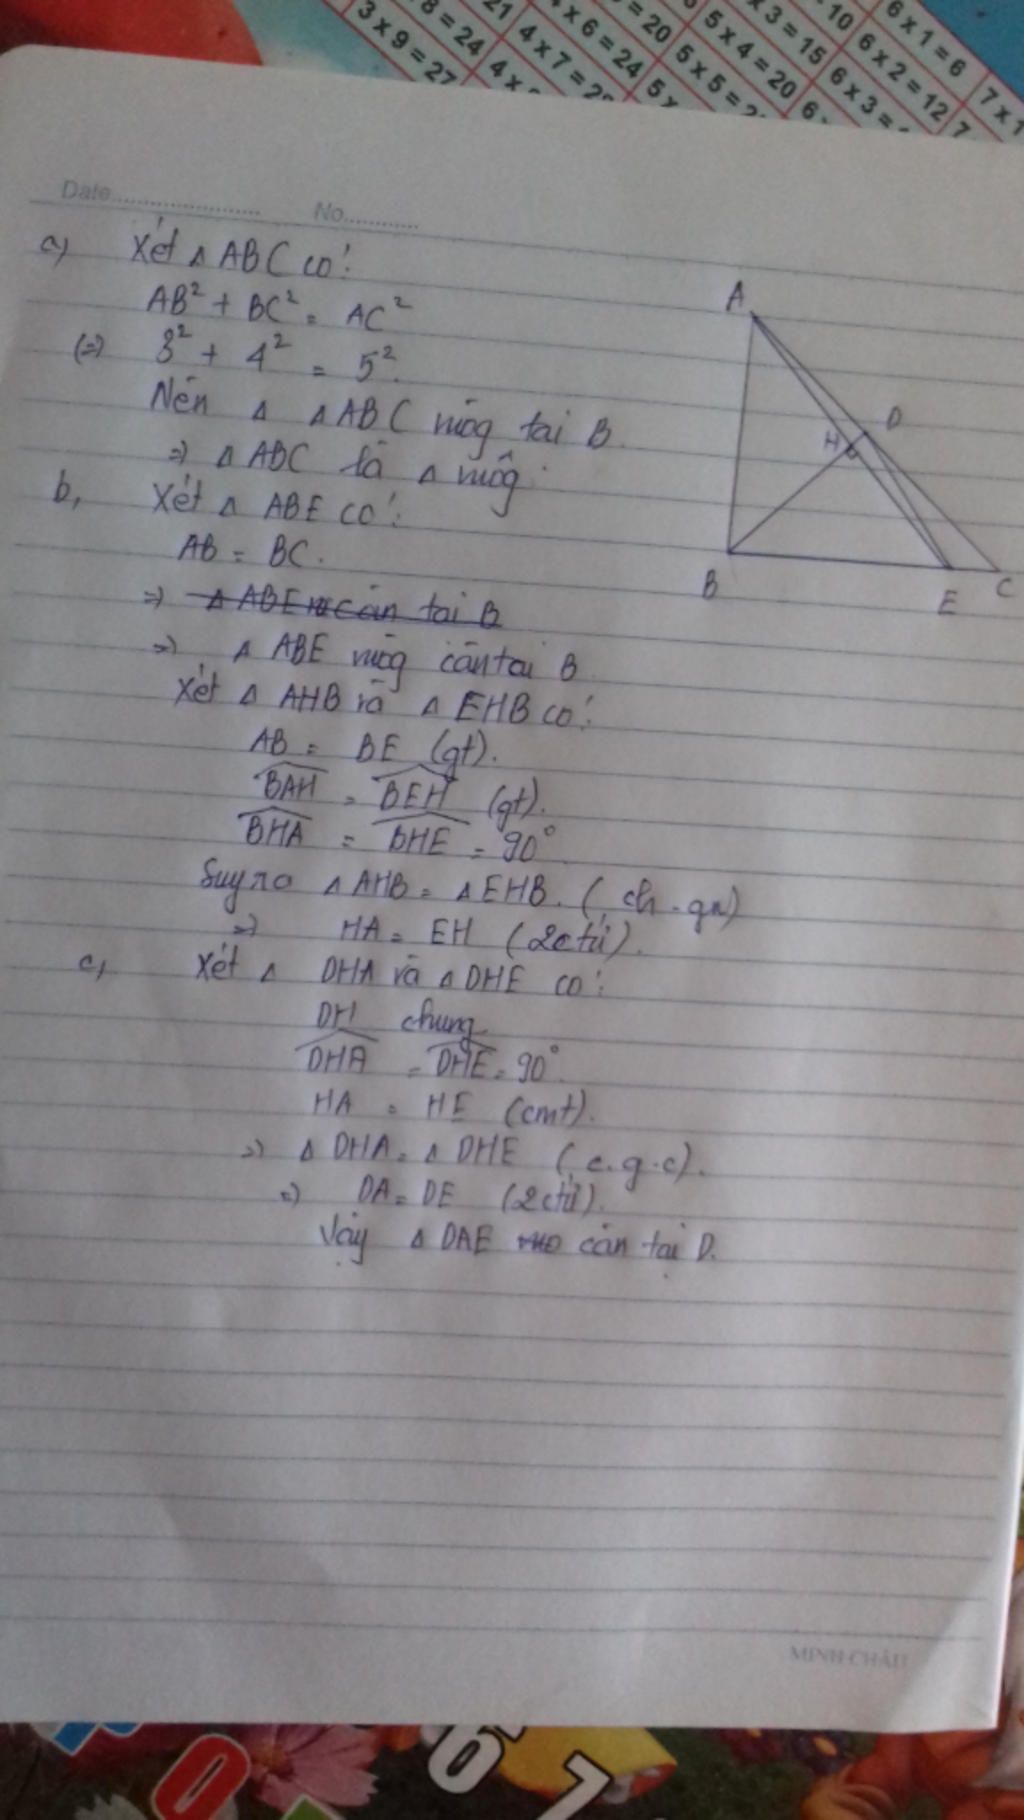 8 = 24
3 x 9 = 27
21
4 x 7 = 2
4 x
4 x 6 = 24
= 20
5 x 5 = 2
5 x
5 x 4 = 20
x 3 = 15
6 x 3 =
6
10
6 x 2 = 12
6 x 1 = 6
7 x 1
7
Date........................ No............
a) Xét Δ ABC có:
AB² + BC² = AC²
(=) 3² + 4² = 5².
Nên Δ Δ ABC vuôg tại B.
=) Δ ABC là Δ vuôg.
b, Xét Δ ABE có:
AB = BC.
=) Δ ABE cân tại B
=) Δ ABE vuôg cân tại B
Xét Δ AHB và Δ EHB có:
AB = BE (gt).
BAH = BEH (gt).
BHA = BHE = 90°
Suy ra Δ AHB = Δ EHB. (ch.gn)
=) HA = EH (2ctứ).
c, Xét Δ DHA và Δ DHE có:
DH chung
DHA = DHE = 90°.
HA = HE (cmt).
=) Δ DHA = Δ DHE (c.g.c).
=) DA = DE (2ctứ).
Vậy Δ DAE cân tại D.
A
D
H
B
E
C
MINH CHÂU
0
6
7